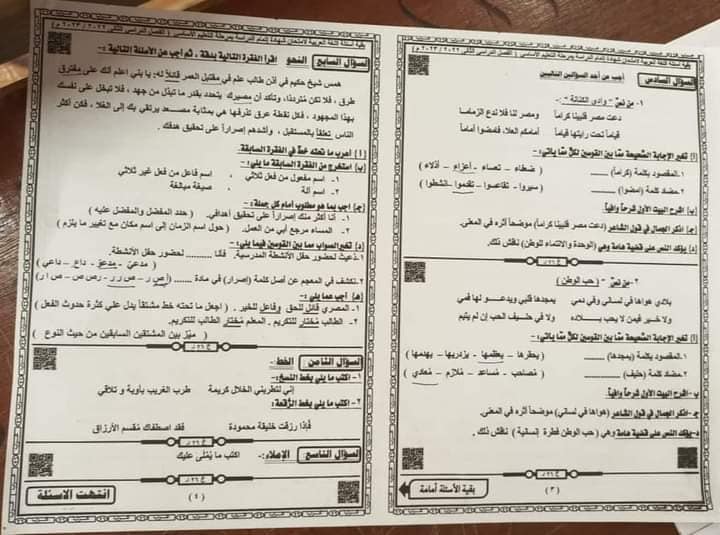 بقية أسئلة اللغة العربية لامتحان شهادة إتمام الدراسة بمرحلة التعليم الأساسي ( الفصل الدراسي الثاني ٢٠٢٢ / ٢٠٢٣ م )
السؤال السادس أجب عن أحد السؤالين التاليين
١- من نص " وادي الكنانة " :-
دعت مصر فلبينا كراماً ومصر لنا فلا ندع الزماما
قياماً تحت رايتها قياماً أمامكم العلا. فامضوا أماماً
(أ) تخير الإجابة الصحيحة مما بين القوسين لكل مما يأتي:-
١.المقصود بكلمة (كراماً) ( ضعفاء – تعساء – أعزاء – أذلاء )
٢.مضاد كلمة (امضوا) (سيروا – تقاعسوا – تقدموا – انشطوا )
(ب) اشرح البيت الأول شرحاً وافياً.
(ج) اذكر الجمال في قول الشاعر (دعت مصر فلبينا كراماً) موضحاً أثره في المعنى.
(د) يؤكد النص على قضية هامة وهي (الوحدة والانتماء للوطن) ناقش ذلك.
٢-من نص " (حب الوطن )
بلادي هواها في لساني وفي دمي يمجدها قلبي ويدعو لها فمي
ولا خير فيمن لا يحب بلاده ولا في حليف الحب إن لم يتيم
(أ) تخير الإجابة الصحيحة مما بين القوسين لكل مما يأتي:-
١.المقصود بكلمة (يمجدها) ( يحقرها – يعظمها – يزدريها – يهدمها )
٢. مضاد كلمة (حليف) ( مُصاحب – مُساعد – مُلازم – مُعادي )
ب- اشرح البيت الأول شرحاً وافياً.
ج- اذكر الجمال في قول الشاعر (هواها في لساني) موضحاً أثره في المعنى.
د-يؤكد النص على قضية هامة وهي ( حب الوطن فطرة إنسانية ) ناقش ذلك .
( ٣ )
بقية الأسئلة أمامة
بقية أسئلة اللغة العربية لامتحان شهادة إتمام الدراسة بمرحلة التعليم الأساسي ( الفصل الدراسي الثاني ٢٠٢٢ / ٢٠٢٣ م )
السؤال السابع النحو اقرأ الفقرة التالية بدقة ، ثم أجب عن الأسئلة التالية :-
همس شيخ حكيم في أذن طالب علم في مقتبل العمر قائلاً له: يا بني اعلم أنك على مفترق
طرق ، فلا تكن مترددًا، وتأكد أن مصيرك يتحدد بقدر ما تبذل من جهد ، فلا تبخل على نفسك
بهذا المجهود ، فكل نقطة عرق تذرفها هي بمثابة مصعد يرتقي بك إلى العُلا، فكن أكثر
الناس تعلقاً بالمستقبل ، وأشدهم إصراراً على تحقيق هدفك .
(أ) أعرب ما تحته خط في الفقرة السابقة.
(ب) استخرج من الفقرة السابقة ما يلي:-
١. اسم مفعول من فعل ثلاثي ، اسم فاعل من فعل غير ثلاثي
٢. اسم آلة ، صيغة مبالغة
(ج) أجب بما هو مطلوب أمام كل جملة :-
١. أنا أكثر منك إصراراً على تحقيق أهدافي. ( حدد المفضل والمفضل عليه )
٢. المساء مرجع أبي من العمل. ( حول اسم الزمان إلى اسم مكان مع تغيير ما يلزم )
(د) تخير الصواب مما بين القوسين فيما يلي:-
١.دُعيتُ لحضور حفل الأنشطة المدرسية. فأنا ........ لحضور حفل الأنشطة.
( مدعيّ – مدعوّ – داع – داعي )
٢.تكشف في المعجم عن أصل كلمة (إصرار) في مادة ...... ( أ ص ر – ص ر ر – ر ص ص – ص ا ر )
(هـ) أجب عما يلي:-
١. المصري قائل للحق وفاعل للخير . ( اجعل ما تحته خط مشتقاً يدل على كثرة حدوث الفعل )
٢. الطالب مُختار للتكريم . المعلم مُختار الطالب للتكريم.
( ميّز بين المشتقين السابقين من حيث النوع )
السؤال الثامن الخط :-
١-اكتب ما يلي بخط النسخ:-
إني لتطربني الخلال كريمة طرب الغريب بأوبة و تلاقي
٢- اكتب ما يلي بخط الرُّقعة:-
فإذا رزقت خليقة محمودة فقد اصطفاك مقسم الأرزاق
السؤال التاسع الإملاء:- اكتب ما يُملى عليك
( ٤ )
انتهت الأسئلة